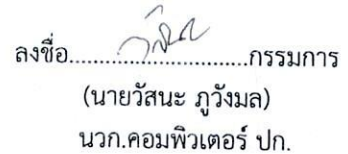 ลงชื่อ...............................กรรมการ
(นายวัสนะ ภูวังมล)
นวก.คอมพิวเตอร์ ปก.